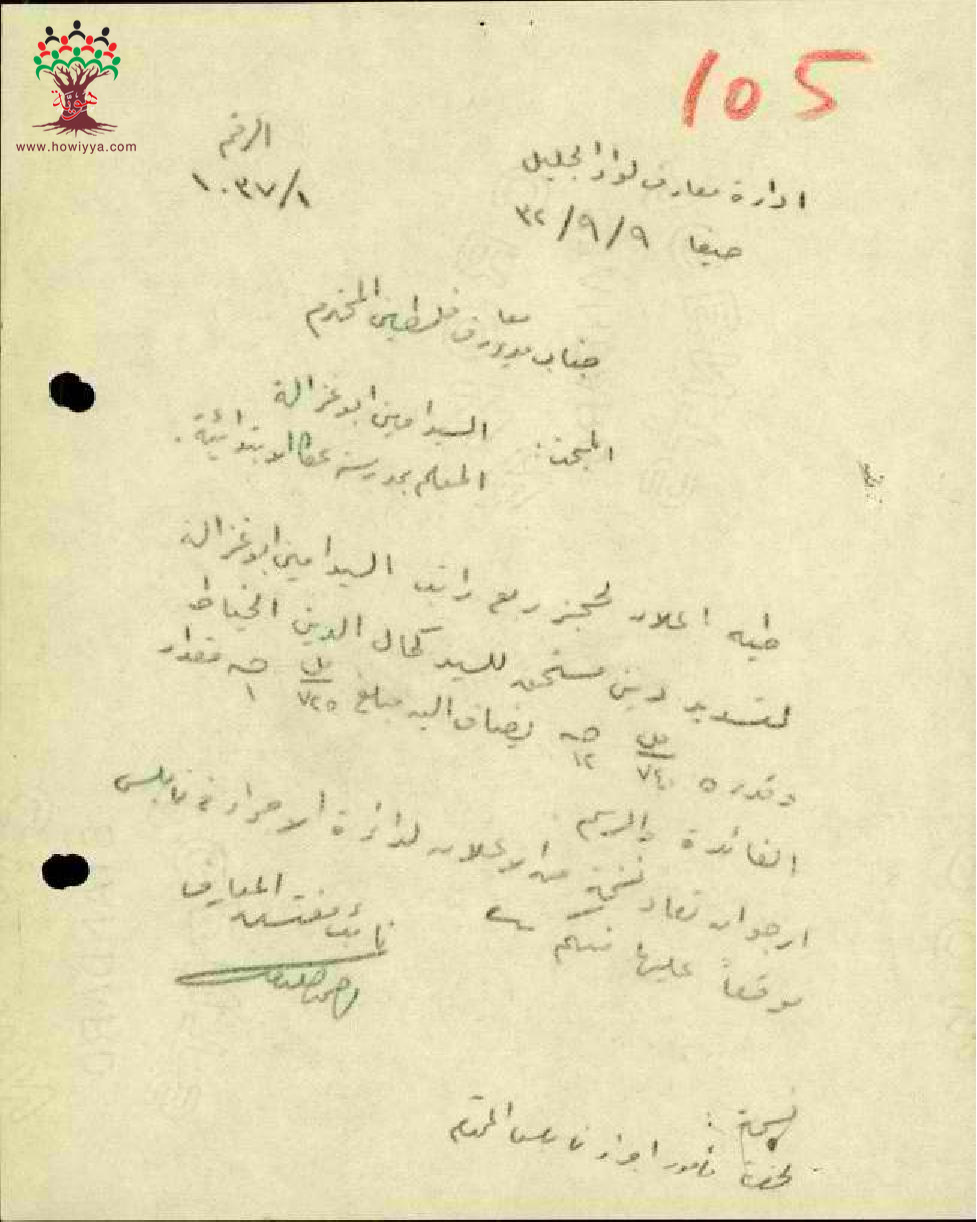 هوية
www.howiyya.com
105
ادارة معارف لواء الجليل
الرقم
١٠٣٧/١
حيفا ٩/٩/٣٢
جناب مدير معارف فلسطين المحترم
المبحث: السيد امين ابو غزالة
المعلم بمدرسة عكا الابتدائية.
طيه اعلان لحجز ربع راتب السيد امين ابو غزالة
لتسديد دين مستحق للسيد كمال الدين الخياط
وقدره ٧٤٠ مل ١٢ جـ يضاف اليه مبلغ ٧٢٥ مل ١ جـ مقدار
الفائدة والرسم
ارجو ان تعاد نسخة من الاعلان لدائرة الاجراء في نابلس
موقعاً عليها منكم
نائب مفتش المعارف
نسخة:
لحضرة مأمور اجراء نابلس المحترم